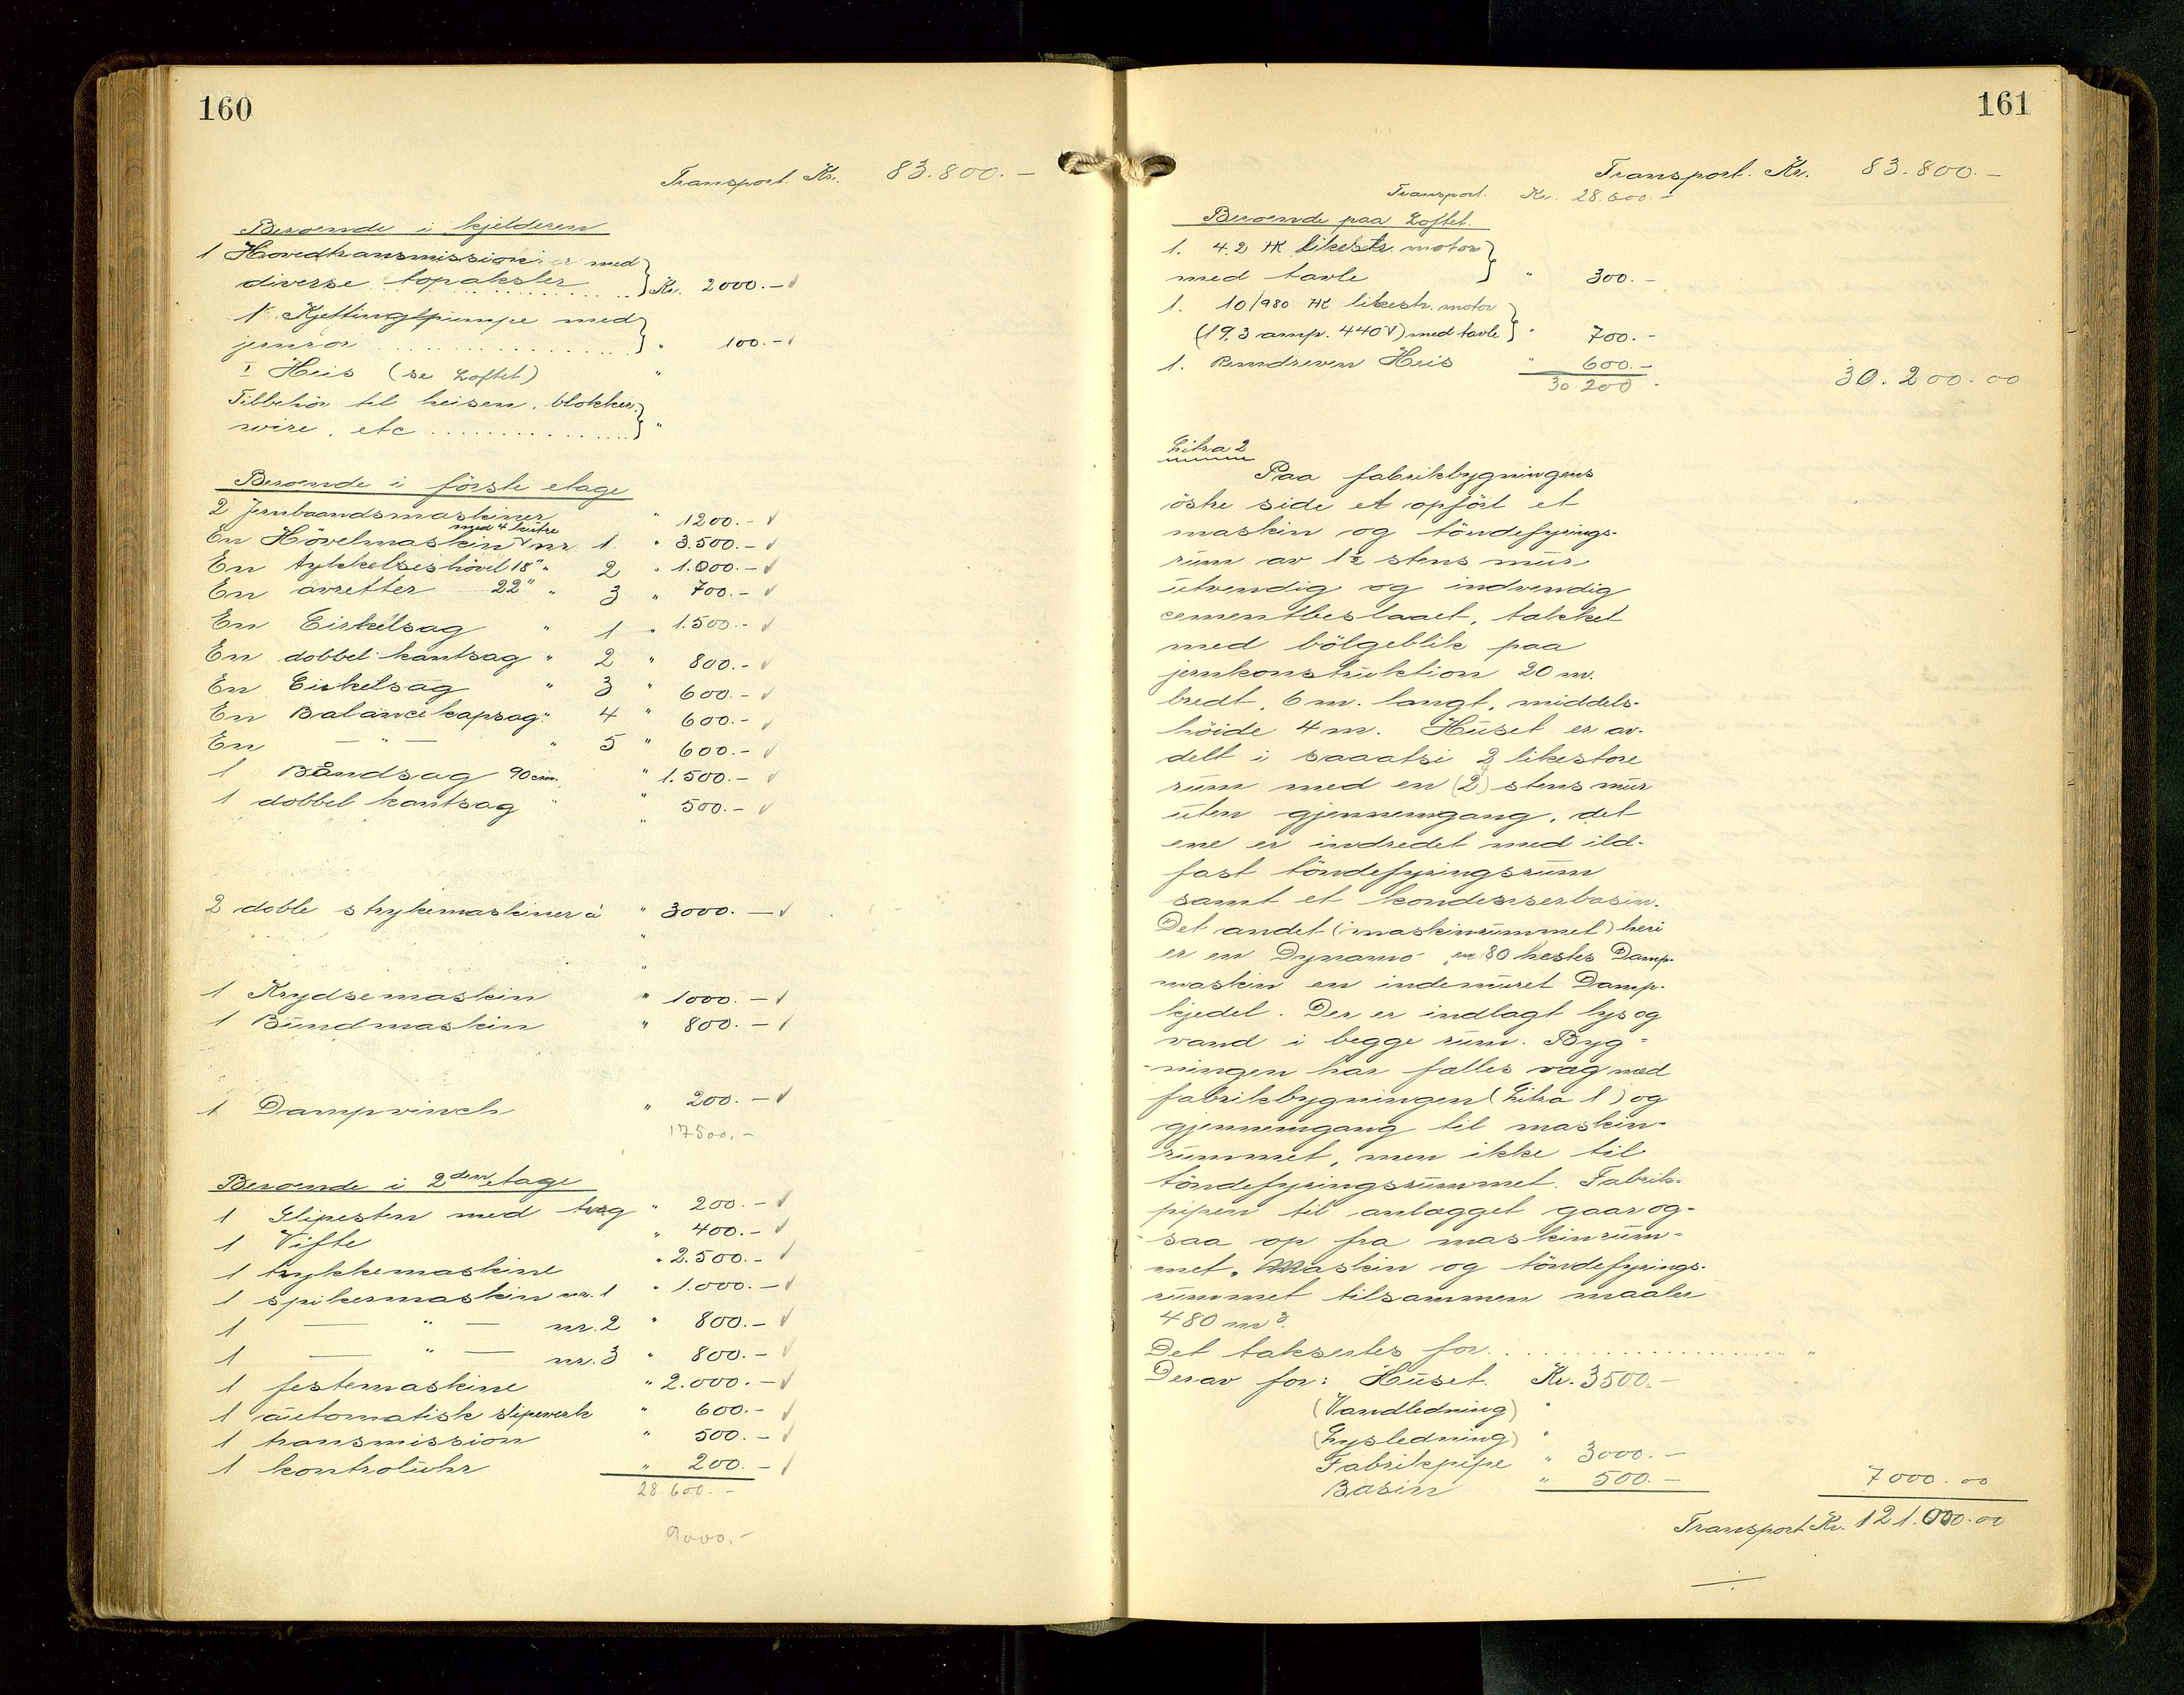 160
Transport. Kr. 83.800.-
Beroende i kjelderen
1 Hovedtransmission er med
diverse topaksler } Kr. 2000.-
1 Kjettingpumpe med
jernrör } " 100.-
1 Heis (se Loftet) "
Tilbehör til heisen, blokker,
wire, etc } "
Beroende i förste etage
2 Jernbaandsmaskiner " 1200.-
med 4 kutre
En Hövelmaskin nr. 1. " 3.500.-
En tykkelseshövel 18" " 2 " 1.000.-
En avretter 22" " 3 " 700.-
En Cirkelsag " 1 " 1.500.-
En dobbel kantsag " 2 " 800.-
En Cirkelsag " 3 " 600.-
En Balancekapsag " 4 " 600.-
En — " — " 5 " 600.-
1 Båndsag 90 cm. " 1.500.-
1 dobbel kantsag " " 500.-
"
2 doble strykemaskiner à " 3000.-
"
"
1 Krydsemaskin " 1000.-
1 Bundmaskin " 800.-
1 Dampvinch " 200.-
17500.-
Beroende i 2den etage
1 Slipesten med trug " 200.-
1 Vifte " 400.-
1 trykkemaskine " 2.500.-
1 spikermaskin nr. 1 " 1.000.-
1 — " — nr. 2 " 800.-
1 — " — nr. 3 " 800.-
1 festemaskine " 2.000.-
1 automatisk slipeverk " 600.-
1 transmission " 500.-
1 kontroluhr " 200.-
28 600.-
9000.-
161
Transport. Kr. 83.800.-
Transport. Kr. 28.600.-
Beroende paa Loftet.
1. 4.2 HK likestr. motor
med tavle } " 300.-
1. 10/980 HK likestr. motor
(19,3 amp. 440V) med tavle } " 700.-
1. Remdreven Heis " 600.-
30 200.- 30.200.00
Litra 2
Paa fabrikbygningens
östre side et opfört et
maskin og töndefyrings-
rum av 1½ stens mur
utvendig og indvendig
cementbeslaaet, takket
med bölgeblik paa
jernkonstruktion 20 m.
bredt, 6 m. langt, middels-
höide 4 m. Huset er av-
delt i saaatsi 2 likestore
rum med en (2) stens mur
uten gjennemgang, det
ene er indredet med ild-
fast töndefyringsrum
samt et kondenserbasin.
Det andet (maskinrummet) heri
er en Dynamo en 80 hestes Damp-
maskin en indemuret Damp-
kjedel. Der er indlagt lys og
vand i begge rum. Byg-
ningen har falles vag med
fabrikbygningen (Litra 1) og
gjennemgang til maskin-
rummet, men ikke til
töndefyringsrummet. Fabrik-
pipen til anlægget gaar og-
saa op fra maskinrum-
met. Maskin og töndefyrings-
rummet tilsammen maaler
480 m³.
Det takseres for. "
Derav for: Huset. Kr. 3500.-
(Vandledning) "
(Lysledning) "
Fabrikpipe " 3000.-
Basin " 500.- 7000.00
Transport Kr. 121.000.00